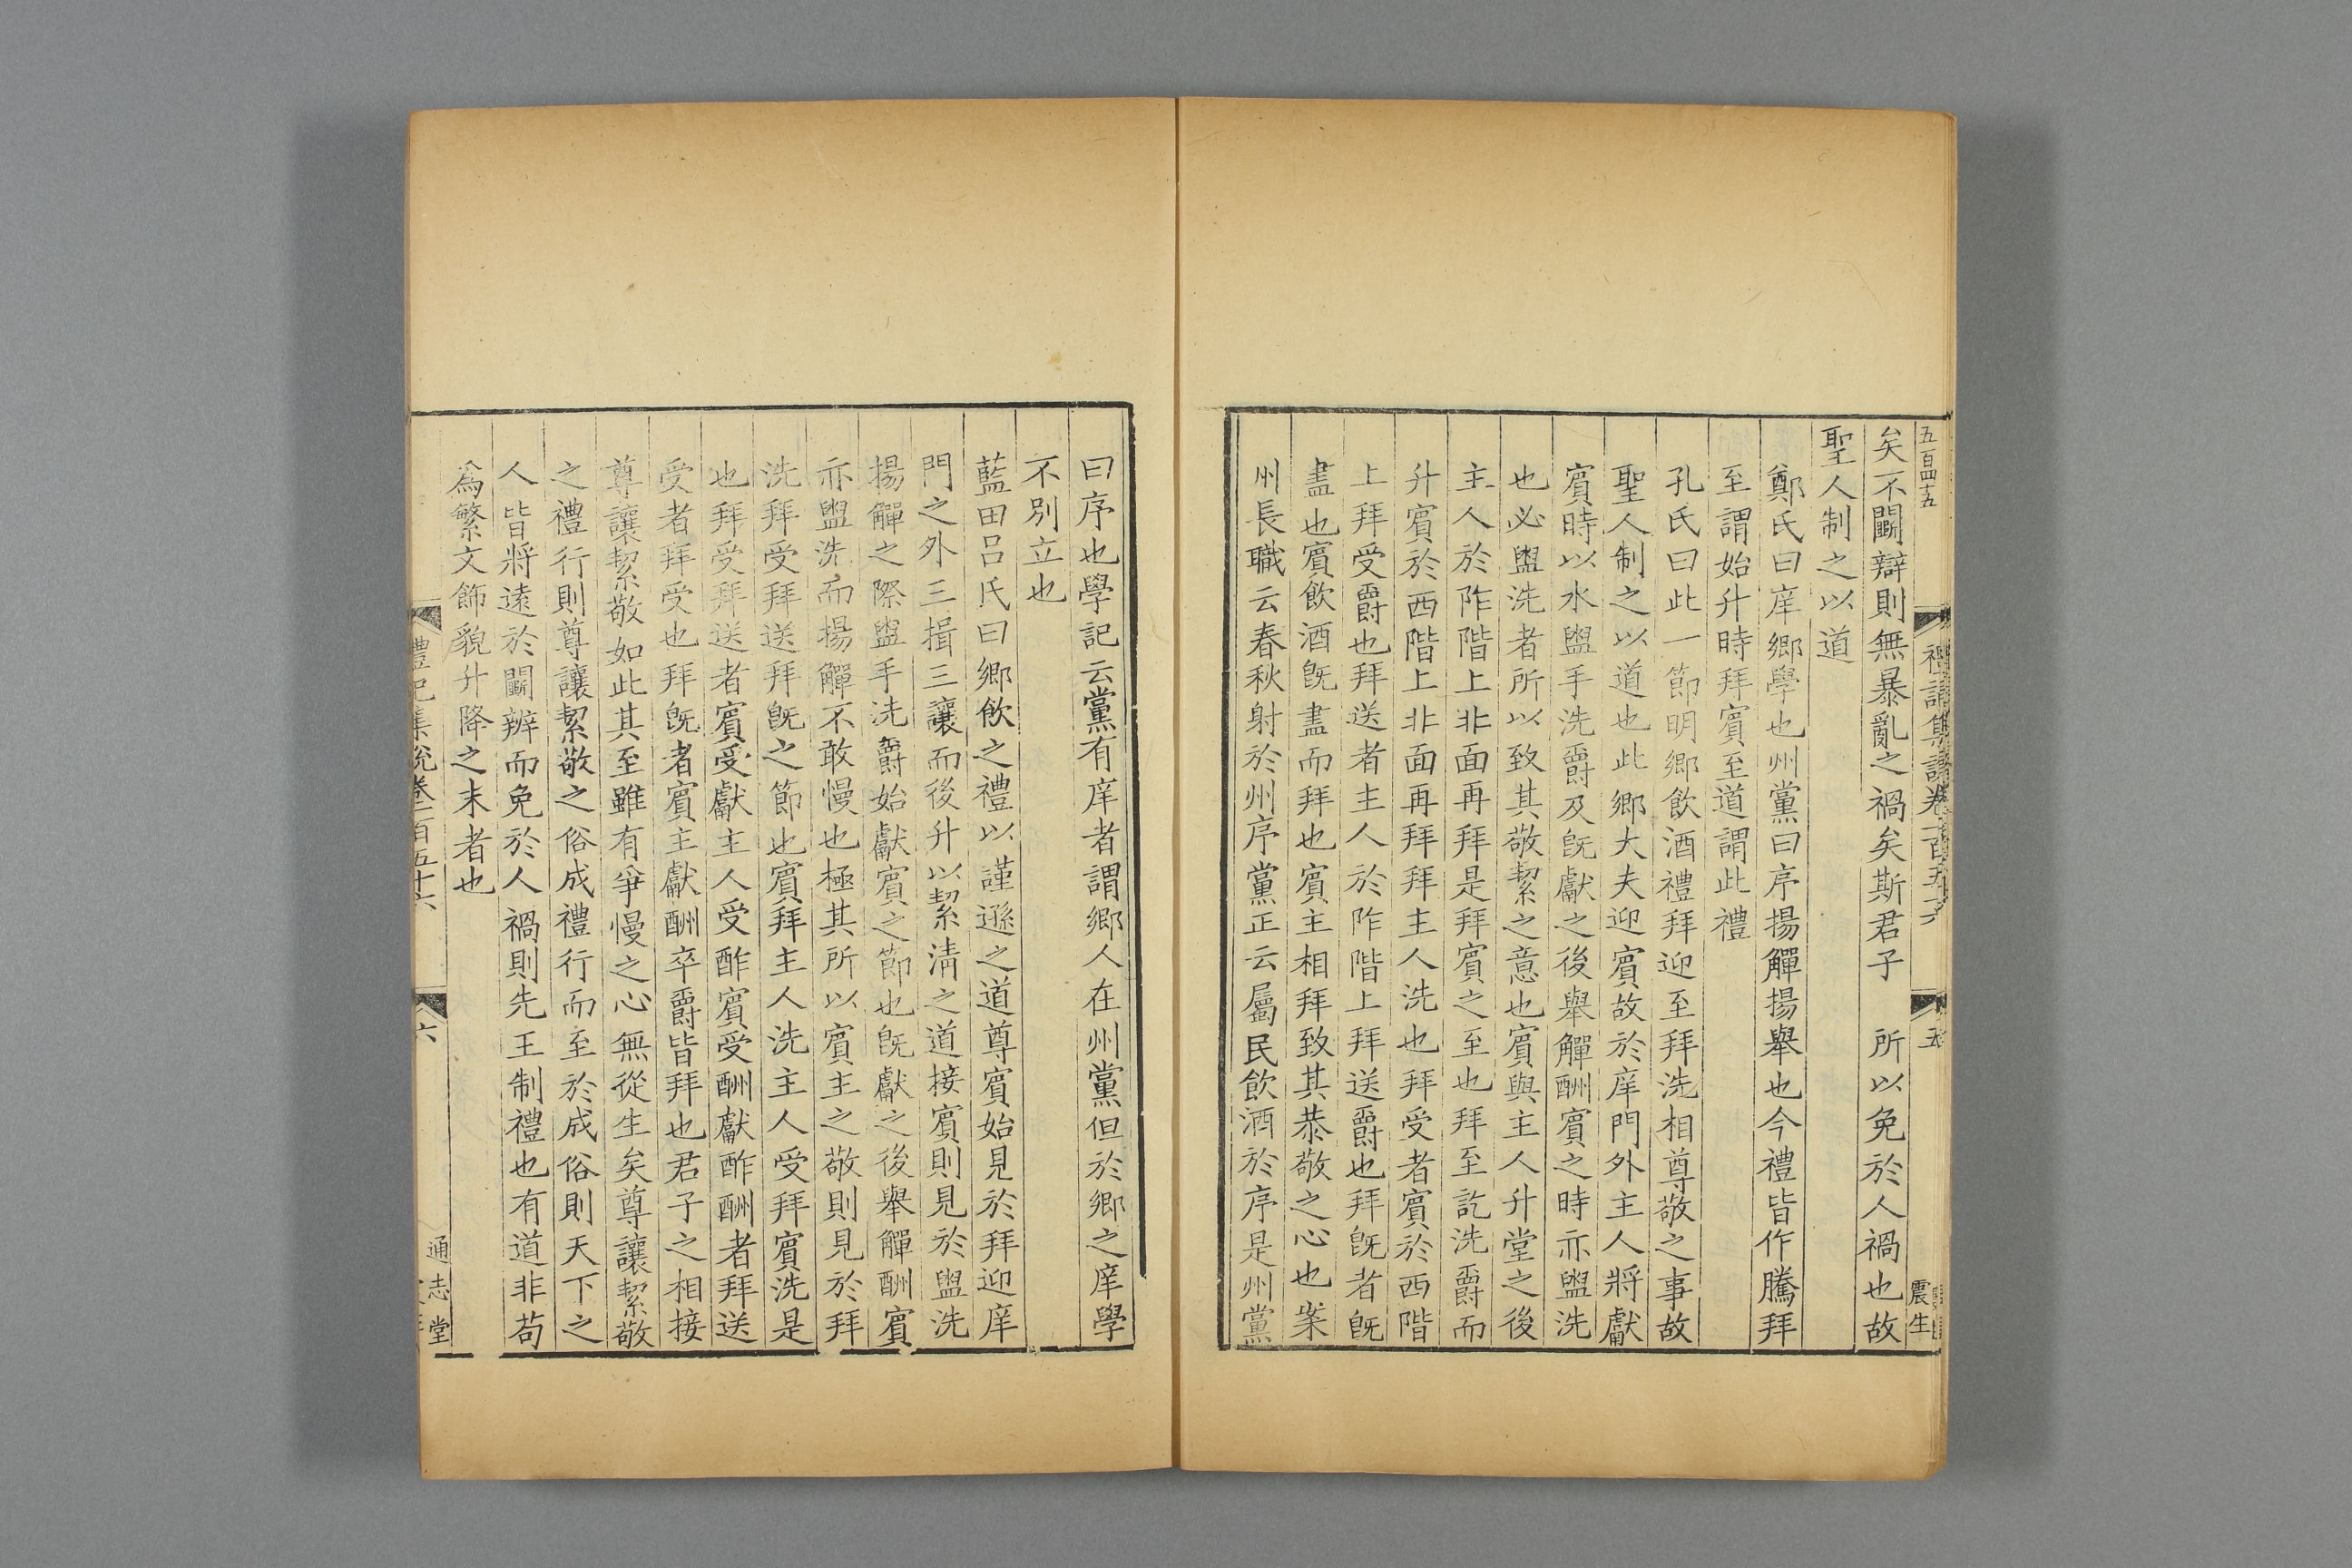 五百四十五
禮記集說卷一百五十六
五
震生
矣不鬭辯則無暴亂之禍矣斯君子所以免於人禍也故
聖人制之以道
鄭氏曰庠鄉學也州黨曰序揚觶揚舉也今禮皆作騰拜
至謂始升時拜賓至道謂此禮
孔氏曰此一節明鄉飲酒禮拜迎至拜洗相尊敬之事故
聖人制之以道也此鄉大夫迎賓故於庠門外主人將獻
賓時以水盥手洗爵及旣獻之後舉觶酬賓之時亦盥洗
也必盥洗者所以致其敬絜之意也賓與主人升堂之後
主人於阼階上非面再拜是拜賓之至也拜至訖洗爵而
升賓於西階上非面再拜拜主人洗也拜受者賓於西階
上拜受爵也拜送者主人於阼階上拜送爵也拜旣者旣
盡也賓飲酒旣盡而拜也賓主相拜致其恭敬之心也案
州長職云春秋射於州序黨正云屬民飲酒於序是州黨
曰序也學記云黨有庠者謂鄉人在州黨但於鄉之庠學
不別立也
藍田呂氏曰鄉飲之禮以謹遜之道尊賓始見於拜迎庠
門之外三揖三讓而後升以絜淸之道接賓則見於盥洗
揚觶之際盥手洗爵始獻賓之節也旣獻之後舉觶酬賓
亦盥洗而揚觶不敢慢也極其所以賓主之敬則見於拜
洗拜受拜送拜旣之節也賓拜主人洗主人受拜賓洗是
也拜受拜送者賓受獻主人受酢賓受酬獻酢酬者拜送
受者拜受也拜旣者賓主獻酬卒爵皆拜也君子之相接
尊讓絜敬如此其至雖有爭慢之心無從生矣尊讓絜敬
之禮行則尊讓絜敬之俗成禮行而至於成俗則天下之
人皆將遠於鬭辨而免於人禍則先王制禮也有道非苟
爲繁文飾貌升降之末者也
禮記集說卷一百五十六
六
通志堂